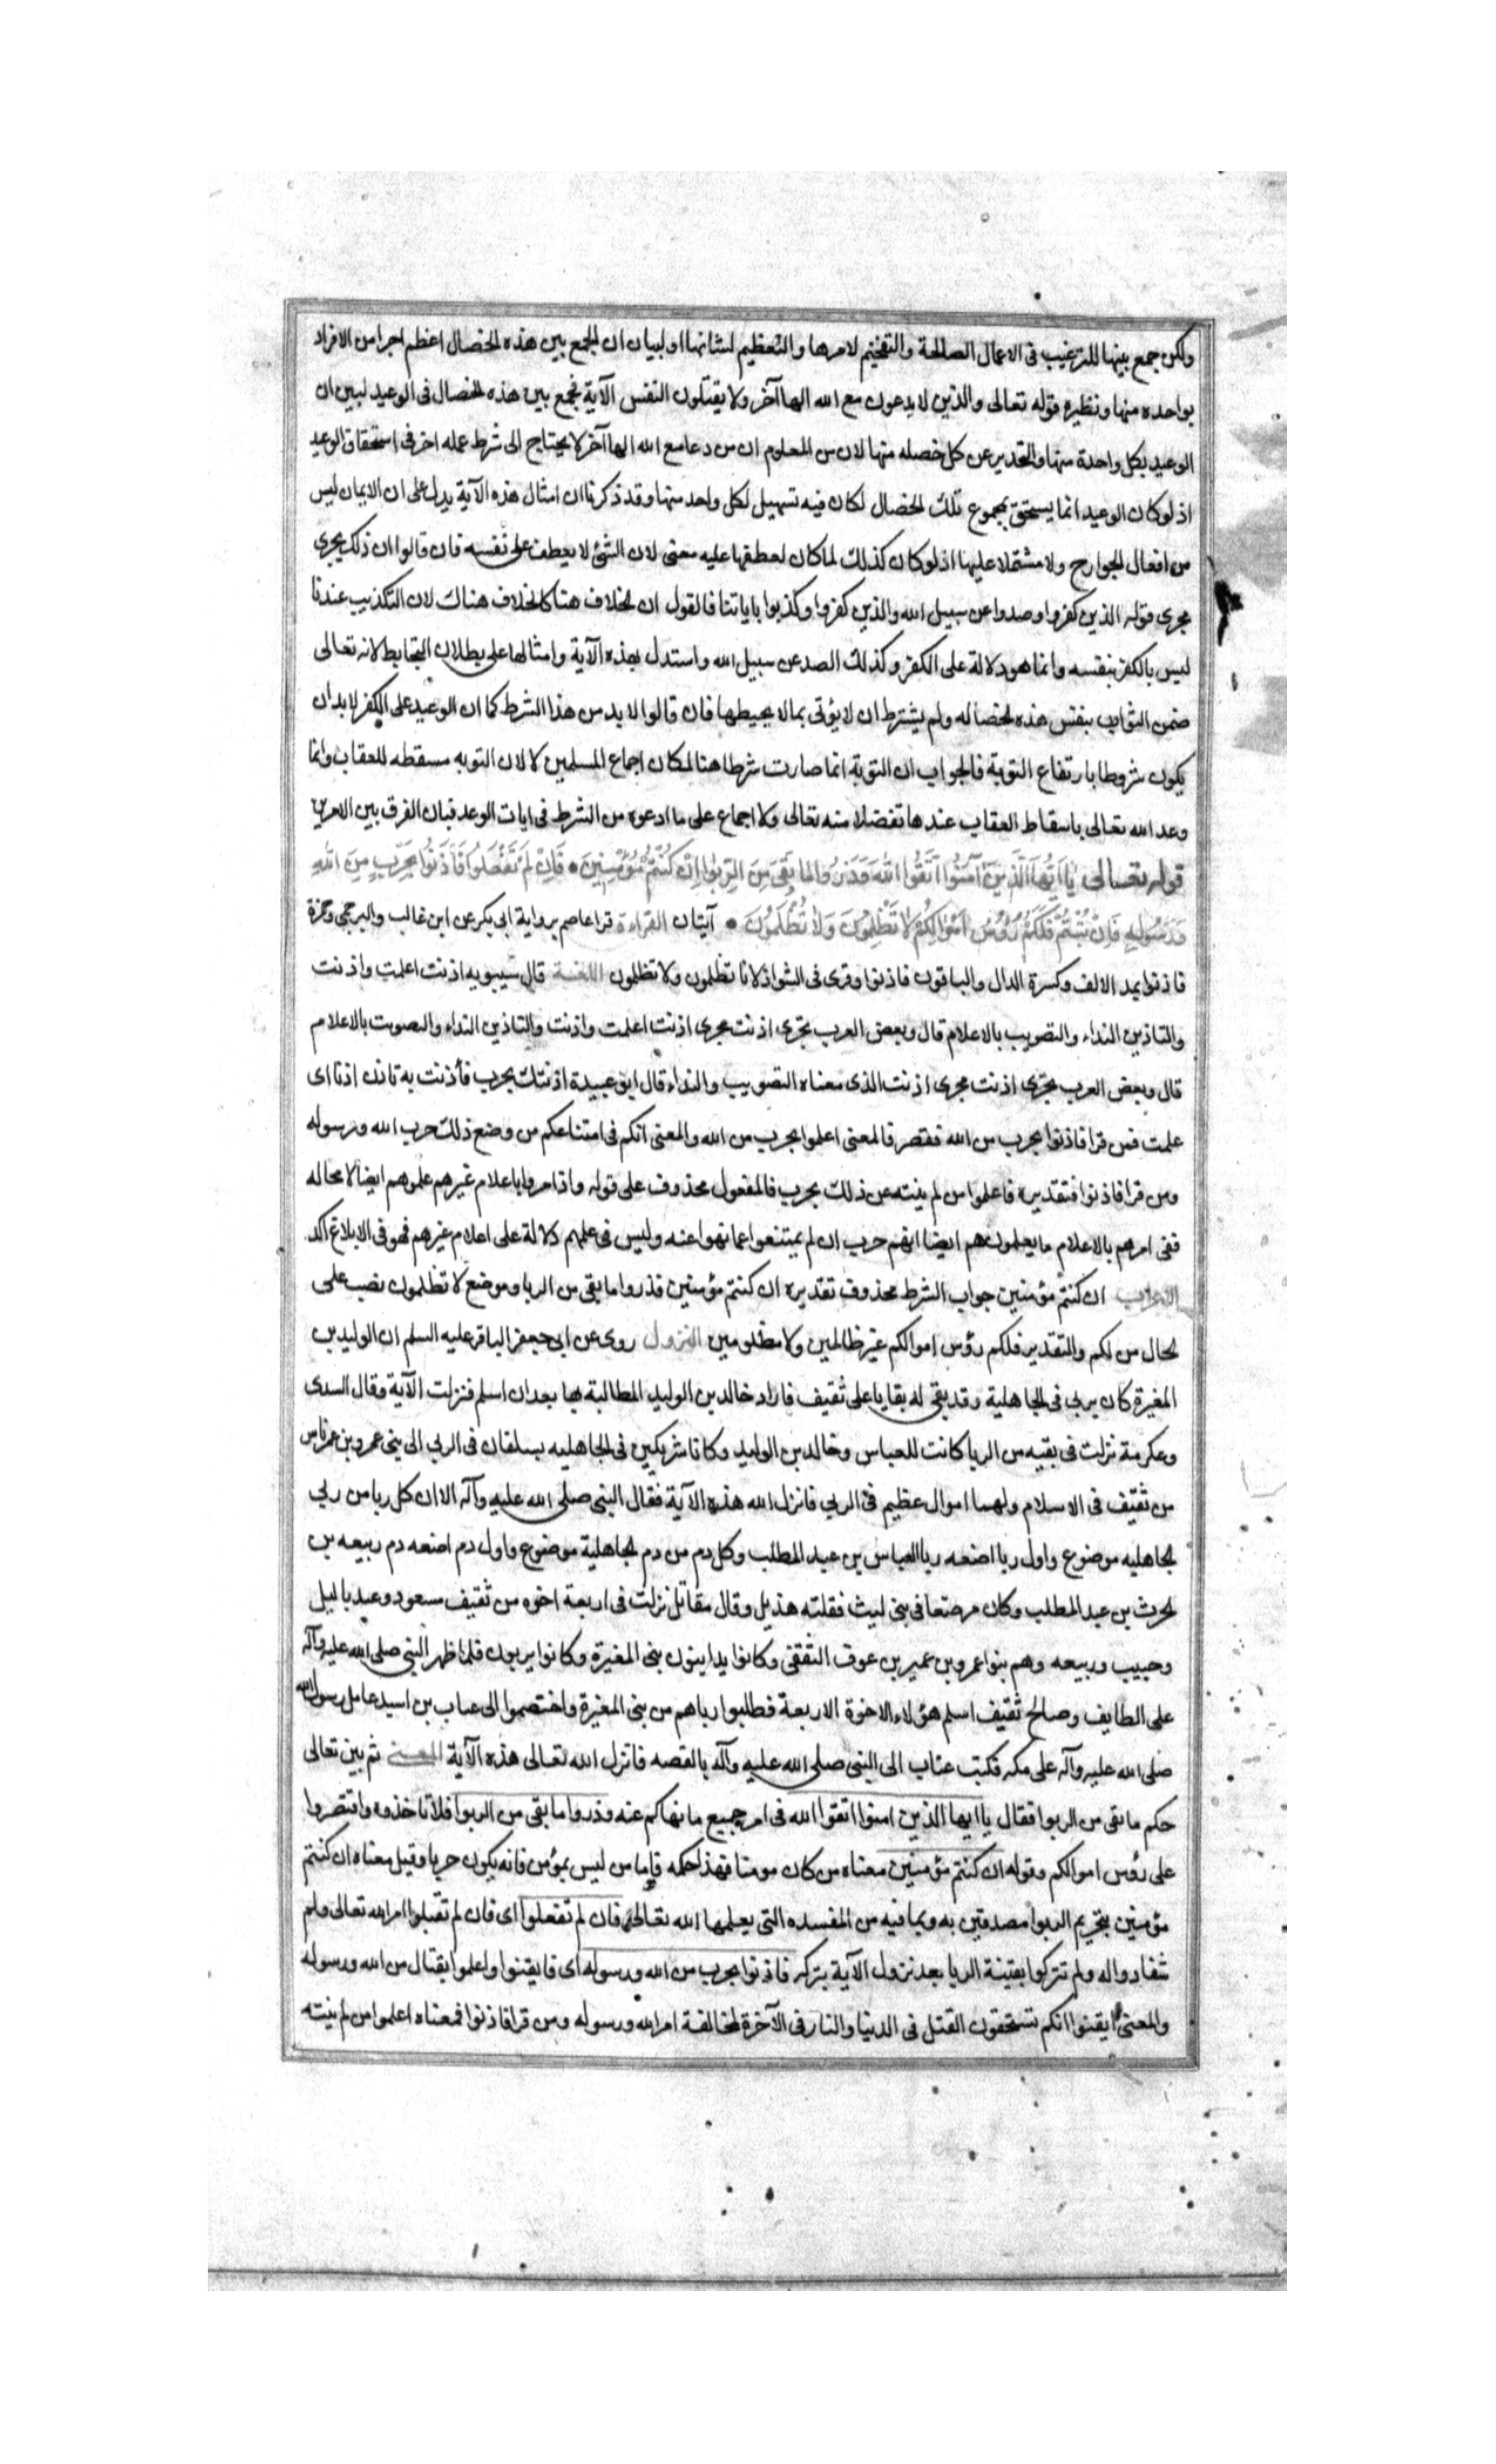 ولكن جمع بينها للترغيب فى الاعمال الصالحة والتفخيم لامرها والتعظيم لشانها او لبيان ان الجمع بين هذه الخصال اعظم اجرا من الافراد
بواحده منها ونظيره قوله تعالى والذين لا يدعون مع الله الها آخر ولا يقتلون النفس الآية فجمع بين هذه الخصال فى الوعيد ليبين ان
الوعيد بكل واحدة منها والتحذير عن كل خصله منها لان من المعلوم ان من دعا مع الله الها آخر لا يحتاج الى شرط عمله اخر فى استحقاق الوعيد
اذ لو كان الوعيد انما يستحق بمجموع تلك الخصال لكان فيه تسهيل لكل واحد منها وقد ذكرنا ان امثال هذه الآية يدل على ان الايمان ليس
من افعال الجوارح ولا مشتملا عليها اذ لو كان كذلك لما كان لعطفها عليه معنى لان الشئ لا يعطف على نفسه فان قالوا ان ذلك يجرى
مجرى قوله الذين كفروا وصدوا عن سبيل الله والذين كفروا وكذبوا باياتنا فالقول ان الخلاف هنا كالخلاف هناك لان التكذيب عندنا
ليس بالكفر بنفسه وانما هو دلالة على الكفر وكذلك الصد عن سبيل الله واستدل بهذه الآية وامثالها على بطلان التحابط لانه تعالى
ضمن الثواب بنفس هذه الخصاله ولم يشترط ان لا يؤتى بما لا يحيطها فان قالوا لا بد من هذا الشرط كما ان الوعيد على الكفر لابد ان
يكون شروطا بارتفاع التوبة فالجواب ان التوبة انما صارت شرطا هنا لمكان اجماع المسلمين لا لان التوبه مسقطه للعقاب وانما
وعد الله تعالى باسقاط العقاب عندها تفضلا منه تعالى ولا اجماع على ما ادعوه من الشرط فى ايات الوعد فبان الفرق بين الامرين
قوله تعالى يٰا اَيُّهَا الَّذِينَ آمَنُوا اتَّقُوا اللّٰهَ وَذَرُوا مٰا بَقِىَ مِنَ الرِّبٰوا اِنْ كُنْتُمْ مُؤْمِنِينَ • فَاِنْ لَمْ تَفْعَلُوا فَأْذَنُوا بِحَرْبٍ مِنَ اللّٰهِ
وَرَسُولِهِ فَاِنْ تُبْتُمْ فَلَكُمْ رُؤُسُ اَمْوٰالِكُمْ لٰا تَظْلِمُونَ وَلٰا تُظْلَمُونَ • آيتان القراءة قرا عاصم برواية ابى بكر عن ابن غالب والبرجمى وحمزة
فاذنوا بمد الالف وكسرة الدال والباقون فاذنوا وقرى فى الشواذ لا تا تظلمون ولا تظلمون اللغــة قال سيبويه اذنت اعلمت واذنت
والتاذين النداء والتصويب بالاعلام قال وبعض العرب يجرى اذنت مجرى اذنت اعلمت واذنت والتاذين النداء والتصويت بالاعلام
قال وبعض العرب يجرى اذنت مجرى اذنت الذى معناه التصويب والنداء قال ابو عبيدة اذنتك بحرب فأذنت به تاذن اذنا اى
علمت فمن قرا فاذنوا بحرب من الله فقصر فالمعنى اعلموا بحرب من الله والمعنى انكم فى امتناعكم من وضع ذلك حرب الله ورسوله
ومن قرا فاذنوا فتقديره فاعلموا من لم ينته عن ذلك بحرب فالمفعول محذوف على قوله واذا مروا باعلام غيرهم علموهم ايضا لا محاله
ففى امرهم بالاعلام ما يعلمون هم ايضا انهم حرب ان لم يمتنعوا عما نهوا عنه وليس فى علمهم دلالة على اعلام غيرهم فهو فى الابلاغ اكد
الاعراب ان كنتم مؤمنين جواب الشرط محذوف تقديره ان كنتم مؤمنين فذروا ما بقى من الربا وموضع لا تظلمون نصب على
الحال من لكم والتقدير فلكم رؤس اموالكم غير ظالمين ولا مظلومين النزول روى عن ابى جعفر الباقر عليه السلم ان الوليد بن
المغيرة كان يربى فى الجاهلية وقد بقى له بقايا على ثقيف فاراد خالد بن الوليد المطالبة بها بعد ان اسلم فنزلت الآية وقال السدى
وعكرمة نزلت فى بقيه من الربا كانت للعباس وخالد بن الوليد وكانا شريكين فى الجاهليه يسلفان فى الربى الى بنى عمرو بن عمر ناس
من ثقيف فى الاسلام ولهما اموال عظيم فى الربى فانزل الله هذه الآية فقال النبى صلى الله عليه وآله الا ان كل ربا من ربى
الجاهليه موضوع واول ربا اضعه ربا العباس بن عبد المطلب وكل دم من دم الجاهلية موضوع واول دم اضعه دم ربيعه بن
الحرث بن عبد المطلب وكان مرضعا فى بنى ليث فقلته هذيل وقال مقاتل نزلت فى اربعة اخوه من ثقيف مسعود وعبد ياليل
وحبيب وربيعه وهم بنوا عمرو بن عمير بن عوف الثقفى وكانوا يداينون بنى المغيرة وكانوا يربون فلما ظهر النبى صلى الله عليه وآله
على الطايف وصالح ثقيف اسلم هؤلاء الاخوة الاربعة فطلبوا رباهم من بنى المغيرة واختصموا الى عتاب بن اسيد عامل رسول الله
صلى الله عليه وآله على مكه فكتب عتاب الى النبى صلى الله عليه وآله بالقصه فانزل الله تعالى هذه الآية المعــنى ثم بين تعالى
حكم ما بقى من الربوا فقال يا ايها الذين امنوا اتقوا الله فى امر جميع ما نهاكم عنه وذروا ما بقى من الربوا فلا تاخذوه واقتصروا
على رؤس اموالكم وقوله ان كنتم مؤمنين معناه من كان مومنا فهذا حكمه فاما من ليس بمؤمن فانه يكون حربا وقيل معناه ان كنتم
مؤمنين بتحريم الربوا مصدقين به وبما فيه من المفسده التى يعلمها الله تعالى فان لم تفعلوا اى فان لم تقبلوا امر الله تعالى ولم
تنقادوا له ولم تتركوا بقيتة الربا بعد نزول الآية بتركه فاذنوا بحرب من الله ورسوله اى فايقنوا واعلموا بقتال من الله ورسوله
والمعنى ايقنوا انكم تستحقون القتل فى الدنيا والنار فى الآخرة لمخالفة امر الله ورسوله ومن قرا فاذنوا فمعناه اعلموا من لم ينته